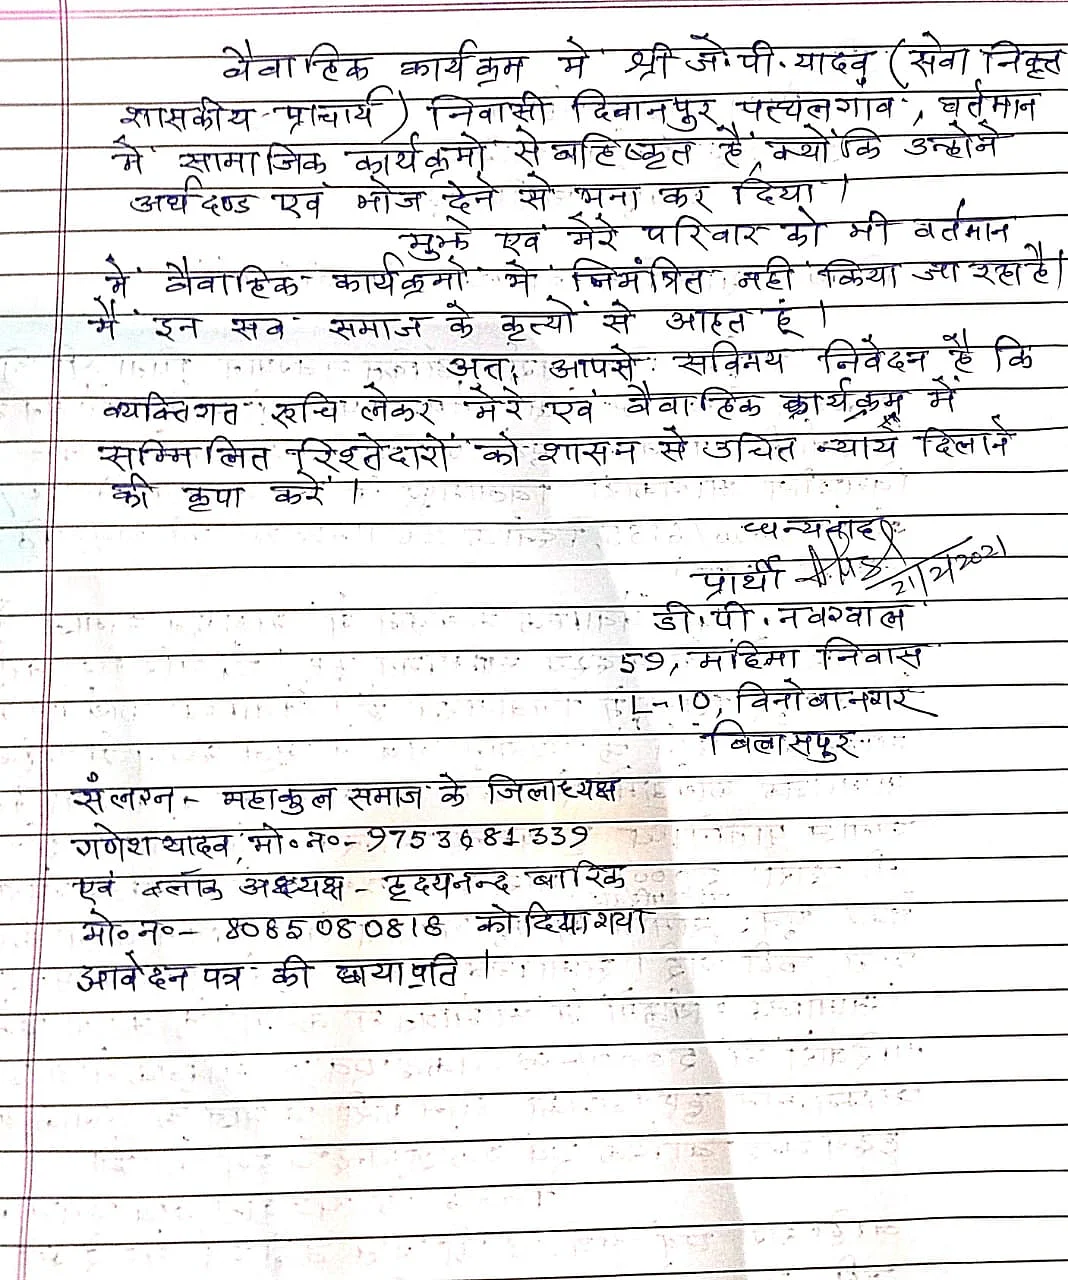 वैवाहिक कार्यक्रम में श्री जे.पी.यादव (सेवा निवृत्त
शासकीय प्राचार्य) निवासी दिवानपुर पत्थलगांव, वर्तमान
में सामाजिक कार्यक्रमों से बहिष्कृत है, क्योंकि उन्होंने
अर्थदण्ड एवं भोज देने से मना कर दिया।
मुझे एवं मेरे परिवार को भी वर्तमान
में वैवाहिक कार्यक्रमों में निमंत्रित नहीं किया जा रहा है।
मैं इन सब समाज के कृत्यों से आहत हूं।
अतः आपसे सविनय निवेदन है कि
व्यक्तिगत रुचि लेकर मेरे एवं वैवाहिक कार्यक्रम में
सम्मिलित रिश्तेदारों को शासन से उचित न्याय दिलाने
की कृपा करें।
धन्यवाद
प्रार्थी 21/2/2021
डी.पी.नवरवाल
59, महिमा निवास
L-10, विनोबा नगर
बिलासपुर
संलग्न - महाकुल समाज के जिलाध्यक्ष
गणेश यादव, मो०न०- 9753681339
एवं ब्लॉक अध्यक्ष - हृदयनन्द बारिक
मो०न०- 8085080818 को दिया गया
आवेदन पत्र की छायाप्रति।